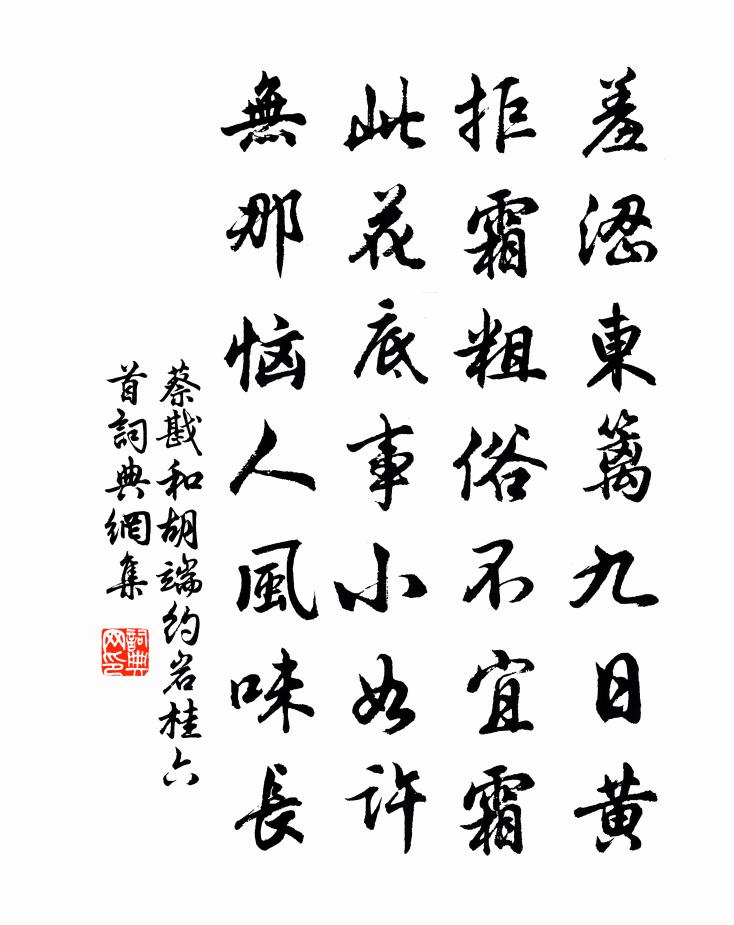 羞澀東籬九日黃
拒霜粗俗不宜霜
此花底事小如許
無那惱人風味長
蔡戡和胡端約岩桂六
首詞典網集
詞典
网印